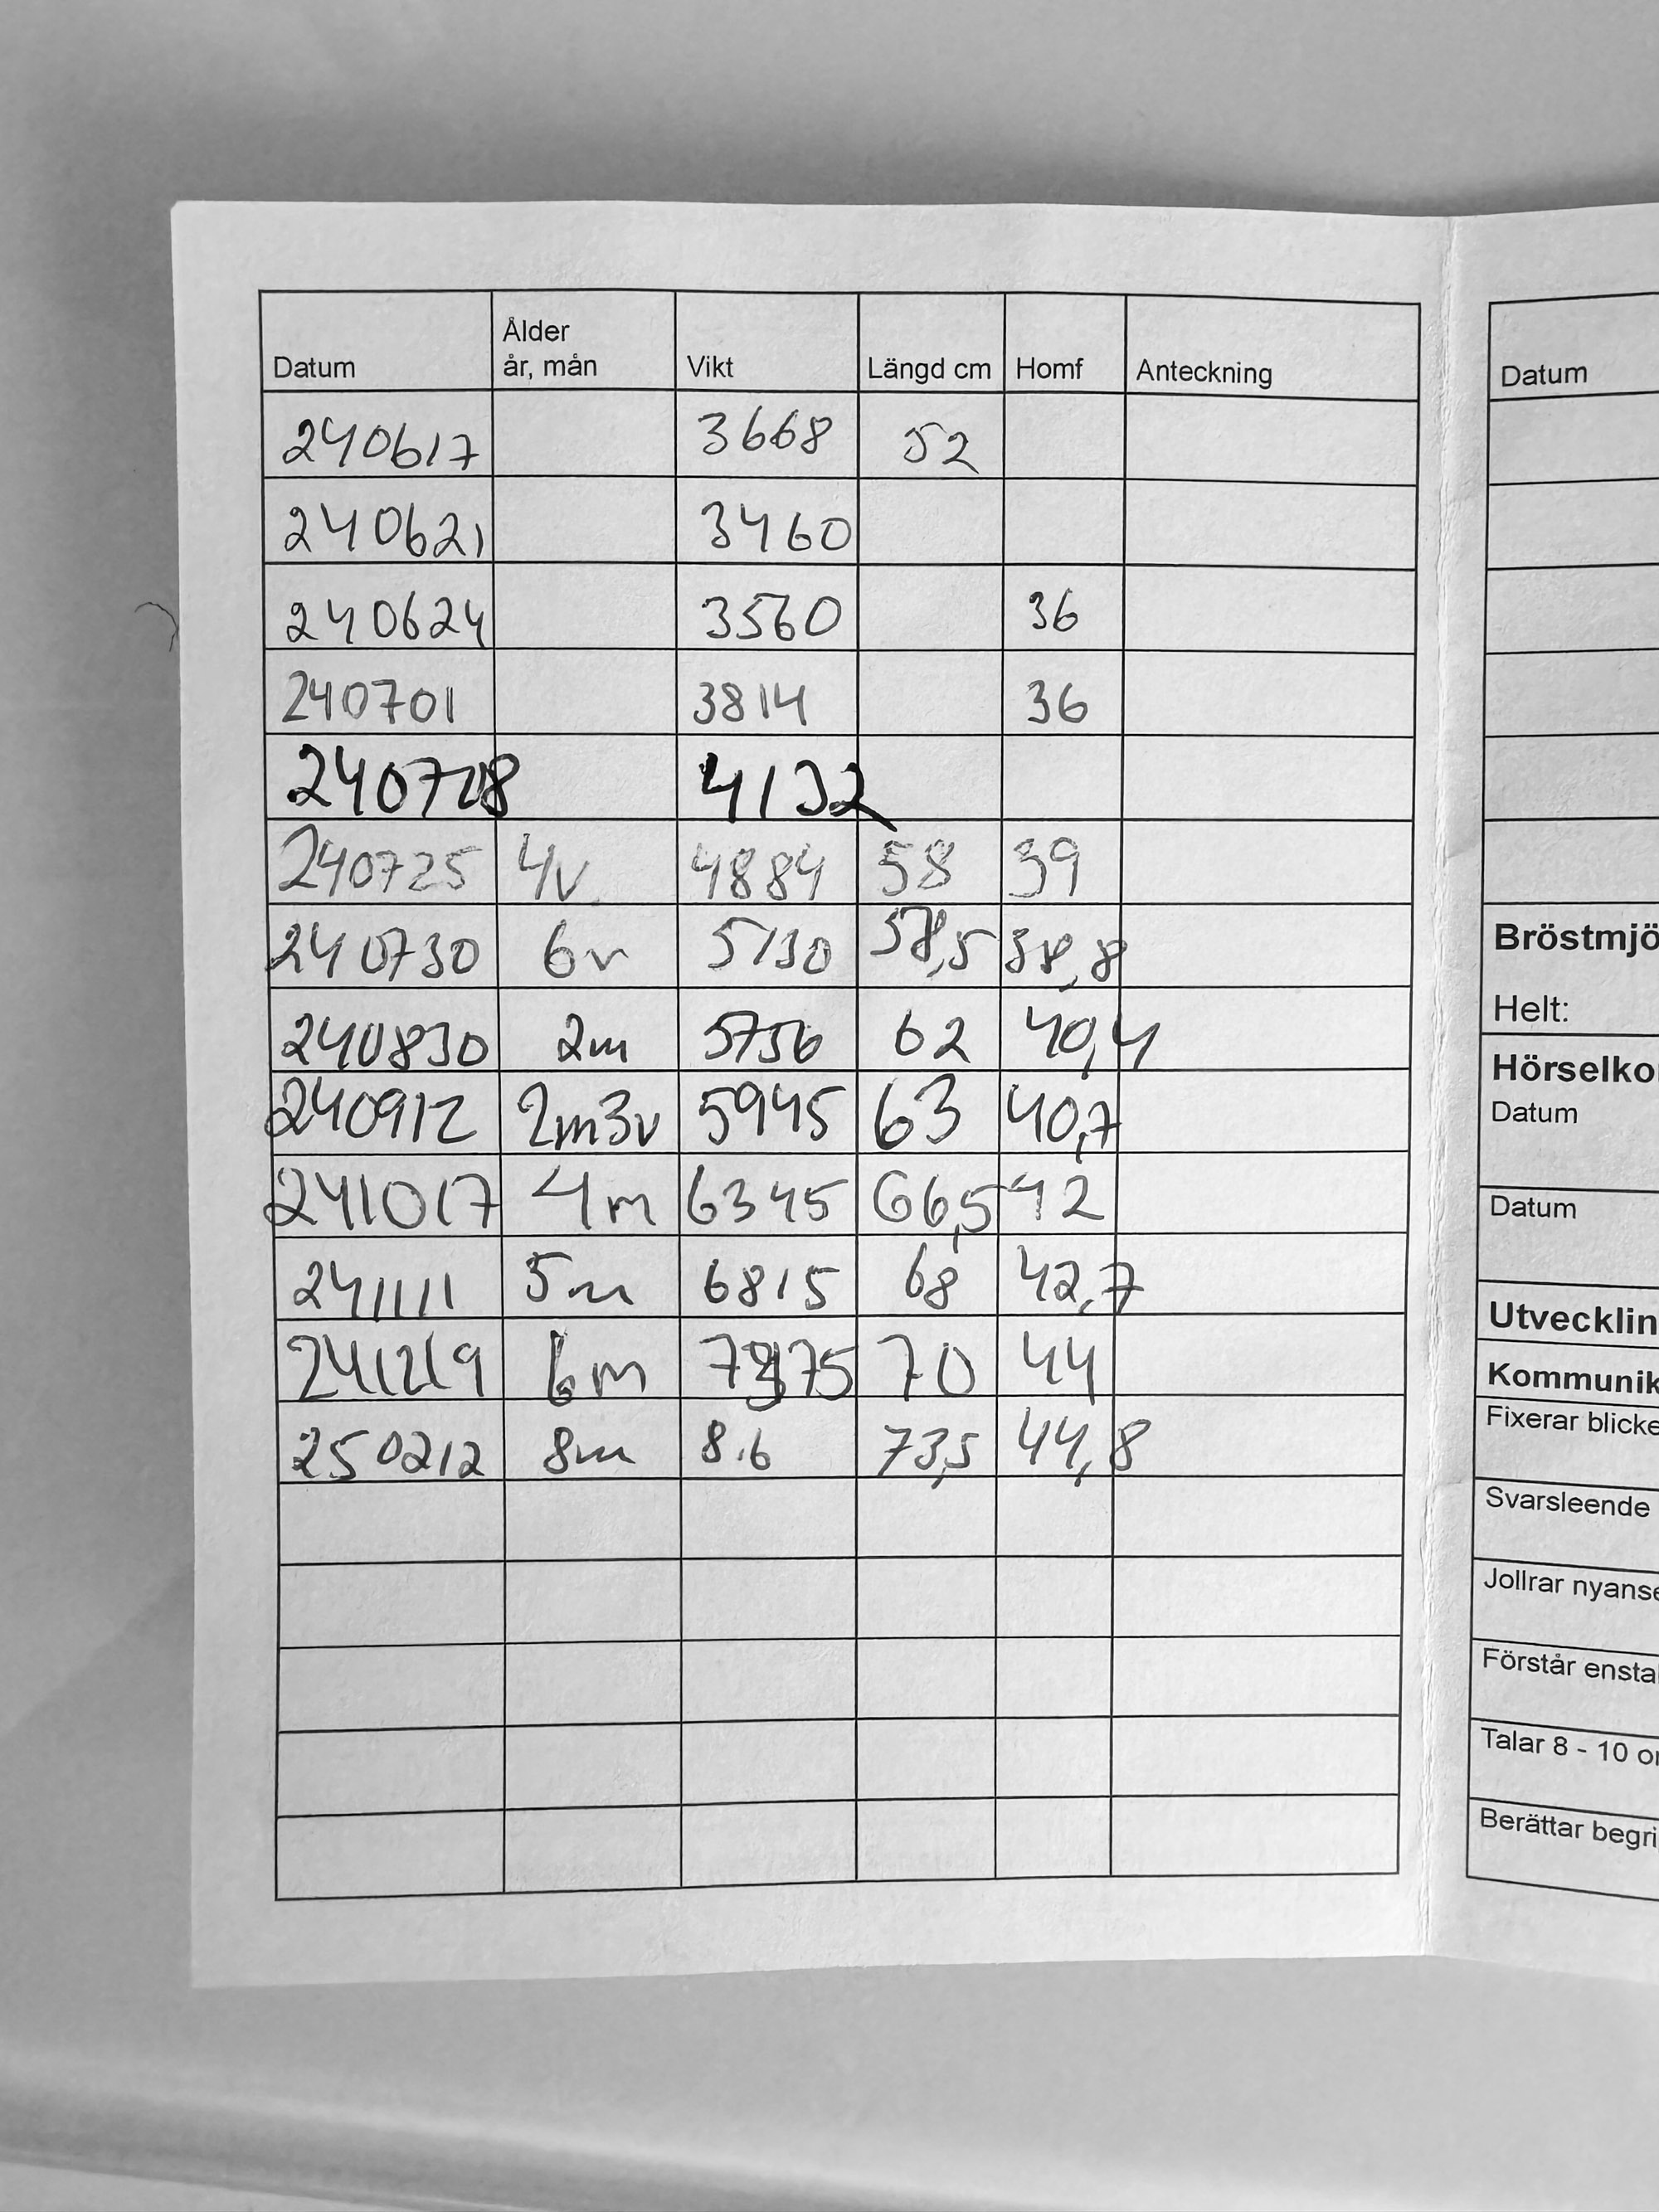 Datum Ålder år, mån Vikt Längd cm Homf Anteckning Datum
240617 3668 52
240621 3460
240624 3560 36
240701 3814 36
4132
240725 4v 4884 58 39
240730 6v 5130 58,5 38,8
240830 2m 5756 62 40,4
240912 2m3v 5945 63 40,7
241017 4m 6345 66,5 42
241111 5m 6815 68 42,7
241219 6m 70 44
250212 8m 8.6 73,5 44,8
Bröstmjö
Helt:
Hörselko
Datum
Datum
Utvecklin
Kommunik
Fixerar blicke
Svarsleende
Jollrar nyanse
Förstår ensta
Talar 8 - 10 o
Berättar begri